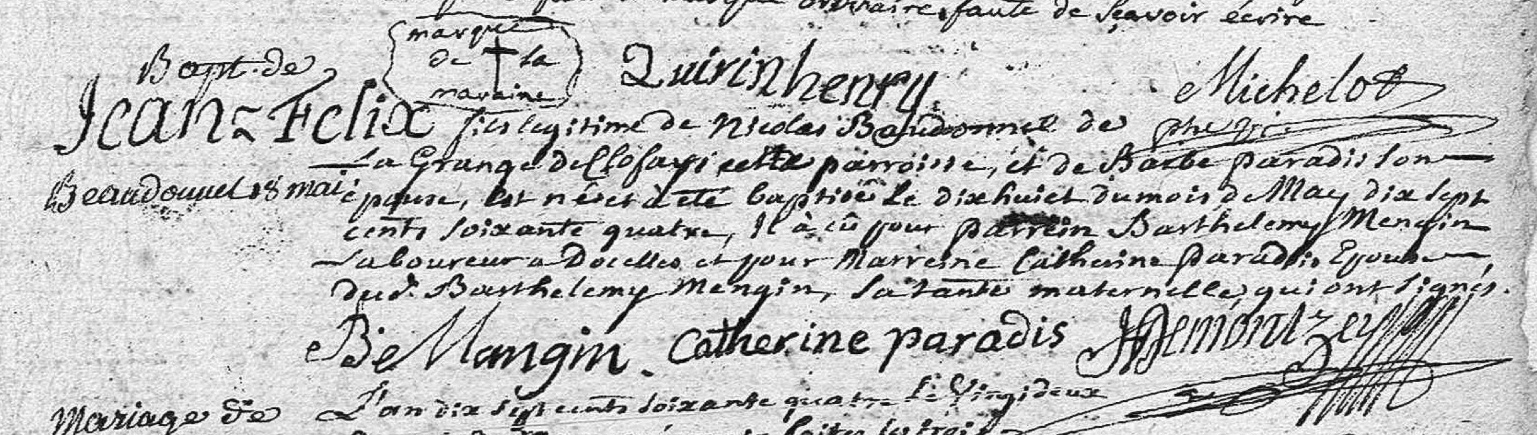 ordinaire, faute de sçavoir écrire
marque
de la
maraine
Quirin henry
Michelot
Bapt. de
Jean-Felix
Beaudonnel 18 mai
fils legitime de Nicolas Baudonnel de
La Grange de Clofayi cette parroisse, et de Barbe paradis son
épouse, est né et à été baptisé Le dix huict du mois de May dix sept
cents soixante quatre, Il à eû pour parrein Barthelemy Mengin
Laboureur a Docelles et pour Marreine Catherine paradis Epouse
dud. Barthelemy Mengin, sa tante maternelle, qui ont signés.
Be Mangin. Catherine paradis Demontzey
Mariage de
L'an dix sept cents soixante quatre Le Vingt deux